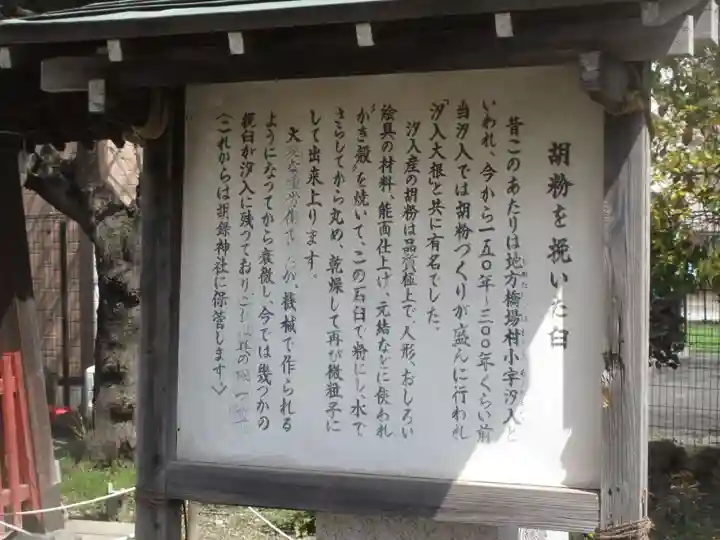 胡粉を挽いた臼
昔このあたりは地方橋場村小字汐入と
いわれ、今から一五〇年～三〇〇年くらい前
当汐入では胡粉づくりが盛んに行われ
「汐入大根」と共に有名でした。
汐入産の胡粉は品質極上で、人形、おしろい
絵具の材料、能面仕上げ、元結などに使われ
かき殻を焼いて、この石臼で粉にし、水で
さらしてから丸め、乾燥して再び微粒子に
して出来上ります。
大変な重労働でしたが、機械で作られる
ようになってから衰微し、今では幾つかの
挽臼が汐入に残っておりこれは其の
（これからは胡録神社に保管します。）